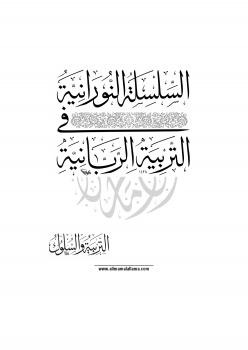 السلسلة النورانية
في
التربية الربانية
التربية والسلوك
www.alimamalallama.com